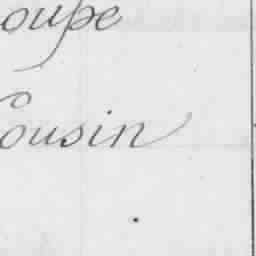 oupe
Cousin